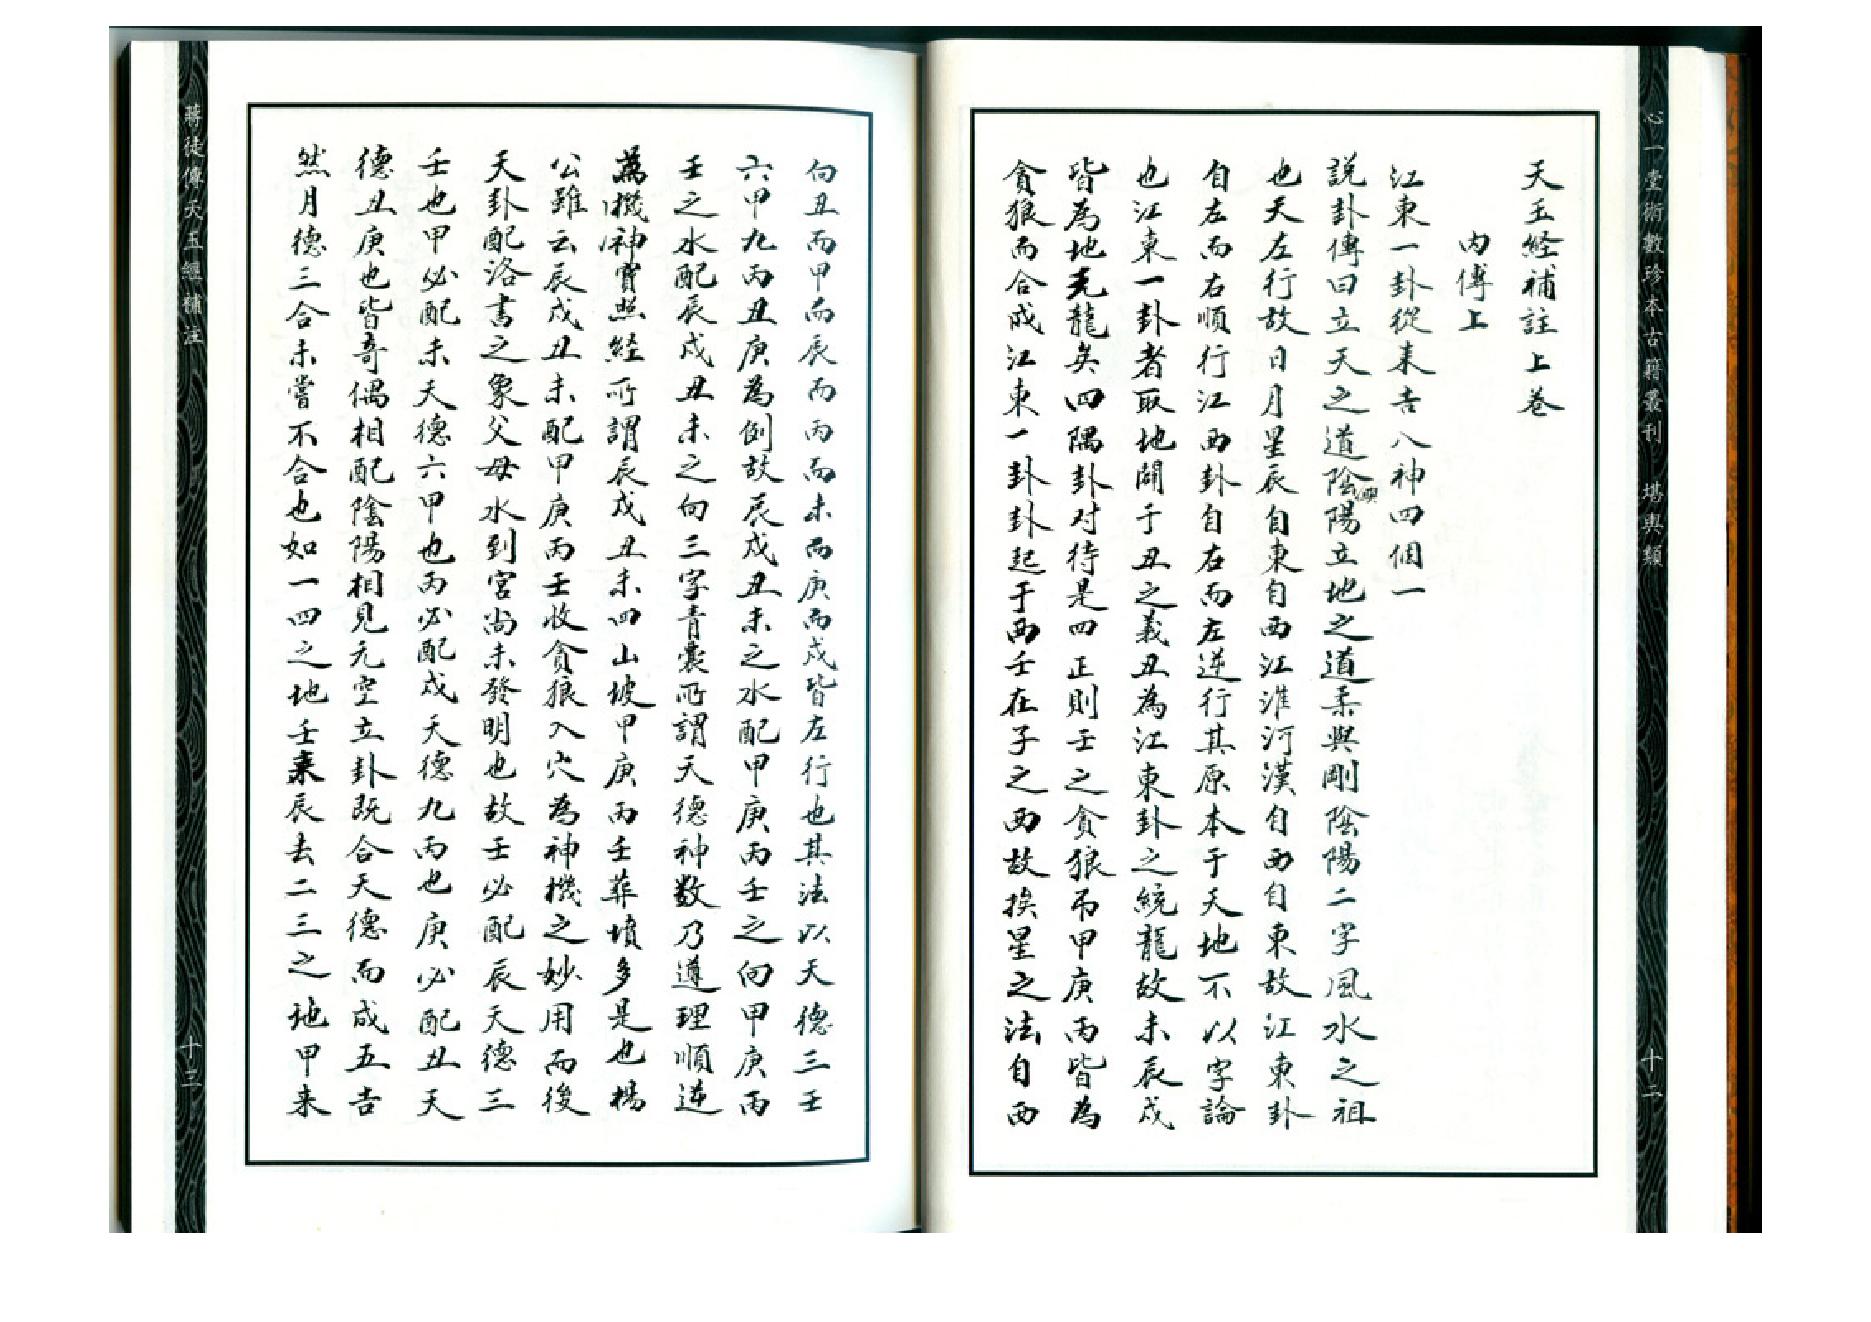 心一堂術數珍本古籍叢刊 堪輿類
十二
天玉経補註上卷
内傳上
江東一卦從来吉八神四個一
説卦傳曰立天之道陰與陽立地之道柔與剛陰陽二字風水之祖
也天左行故日月星辰自東自西江淮河漢自西自東故江東卦
自左而右順行江西卦自右而左逆行其原本于天地不以字論
也江東一卦者取地闢于丑之義丑為江東卦之統龍故未辰戍
皆為地元龍矣四隅卦对待是四正則壬之貪狼而甲庚丙皆為
貪狼而合成江東一卦卦起于西壬在子之西故挨星之法自西
向丑而甲而辰而丙而未而庚而戍皆左行也其法以天德三壬
六甲九丙丑庚為例故辰戍丑未之水配甲庚丙壬之向甲庚丙
壬之水配辰戍丑未之向三字青囊所謂天德神数乃遵理順逆
為機神寳照経所謂辰戍丑未四山坡甲庚丙壬葬墳多是也楊
公雖云辰戍丑未配甲庚丙壬收貪狼入穴為神機之妙用而後
天卦配洛書之象父母水到宮尚未發明也故壬必配辰天德三
壬也甲必配未天德六甲也丙必配戍天德九丙也庚必配丑天
德丑庚也皆奇偶相配陰陽相見元空立卦既合天德而成五吉
然月德三合未嘗不合也如一四之地壬来辰去二三之地甲来
蔣徒傳天玉經補注
十三